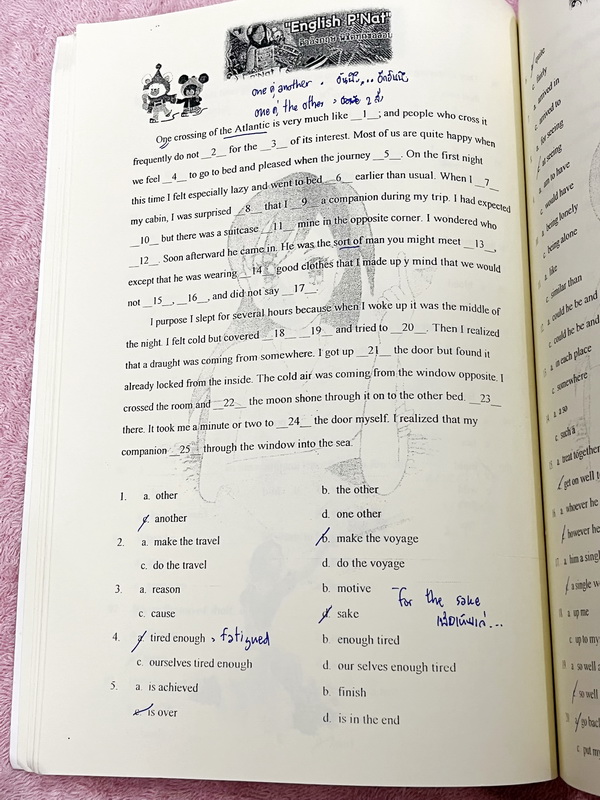 "English P'Nat"
one คู่ another .
one คู่ the other >
One crossing of the Atlantic is very much like __1__; and people who cross it
frequently do not __2__ for the __3__ of its interest. Most of us are quite happy when
we feel __4__ to go to bed and pleased when the journey __5__. On the first night
this time I felt especially lazy and went to bed __6__ earlier than usual. When I __7__
my cabin, I was surprised __8__ that I __9__ a companion during my trip. I had expected
__10__ but there was a suitcase __11__ mine in the opposite corner. I wondered who
__12__. Soon afterward he came in. He was the sort of man you might meet __13__,
except that he was wearing __14__ good clothes that I made up y mind that we would
not __15__, __16__, and did not say __17__.
I purpose I slept for several hours because when I woke up it was the middle of
the night. I felt cold but covered __18__ __19__ and tried to __20__. Then I realized
that a draught was coming from somewhere. I got up __21__ the door but found it
already locked from the inside. The cold air was coming from the window opposite. I
crossed the room and __22__ the moon shone through it on to the other bed. __23__
there. It took me a minute or two to __24__ the door myself. I realized that my
companion __25__ through the window into the sea.
1. a. other b. the other
c. another d. one other
2. a. make the travel b. make the voyage
c. do the travel d. do the voyage
3. a. reason b. motive
c. cause d. sake
for the sake
4. a. tired enough > fatigued b. enough tired
c. ourselves tired enough d. our selves enough tired
5. a. is achieved b. finish
c. is over d. is in the end
quite
c. fairly
arrived in
c. arrived to
for seeing
at seeing
a. am to have
c. would have
a. being lonely
c. being alone
a. like
c. similar than
a. could he be and
c. could he be and
a. in each place
c. somewhere
a. a so
c. such a
a. treat together
get on well
a. whoever he
however he
a. him a singl
a single w
a. up me
c. up to my
a. so well a
so well
go back
c. put my